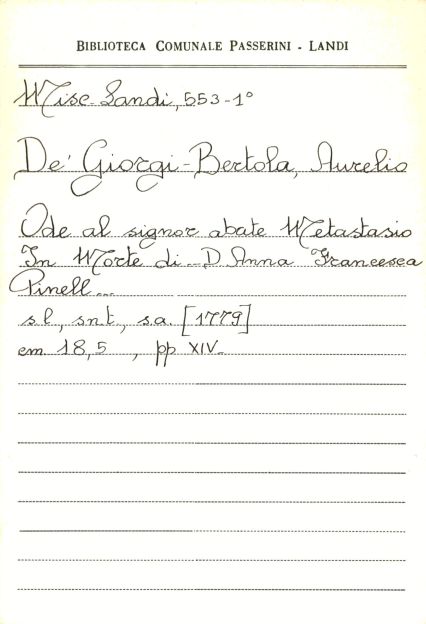 BIBLIOTECA COMUNALE PASSERINI - LANDI
Misc. Landi, 553-1°
De' Giorgi-Bertola, Aurelio
Ode al signor abate Metastasio
In Morte di D. Anna Francesca
Pinell...
s.l., sn.t., s.a. [1779]
cm 18,5 , pp XIV.